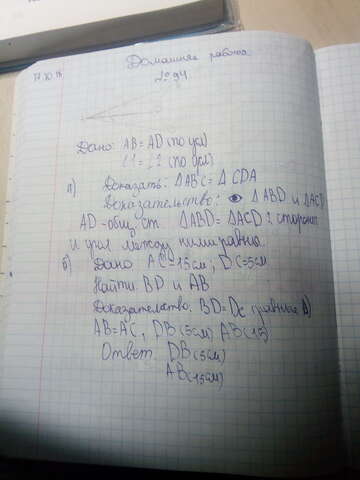 17.10.18 Домашняя работа
№94
Дано: AB = AD (по усл)
∠1 = ∠2 (по усл)
а) Доказать: ΔABC = ΔCDA
Доказательство: ΔABD и ΔACD
AD - общ. ст. ΔABD = ΔACD 2 стороны
и угол между ними равны.
б) Дано AC = 15 см; DC = 5 см
Найти BD и AB
Доказательство. BD = DC
AB = AC, DB (5 см) AB (15)
Ответ. DB (5 см)
AB (15 см)